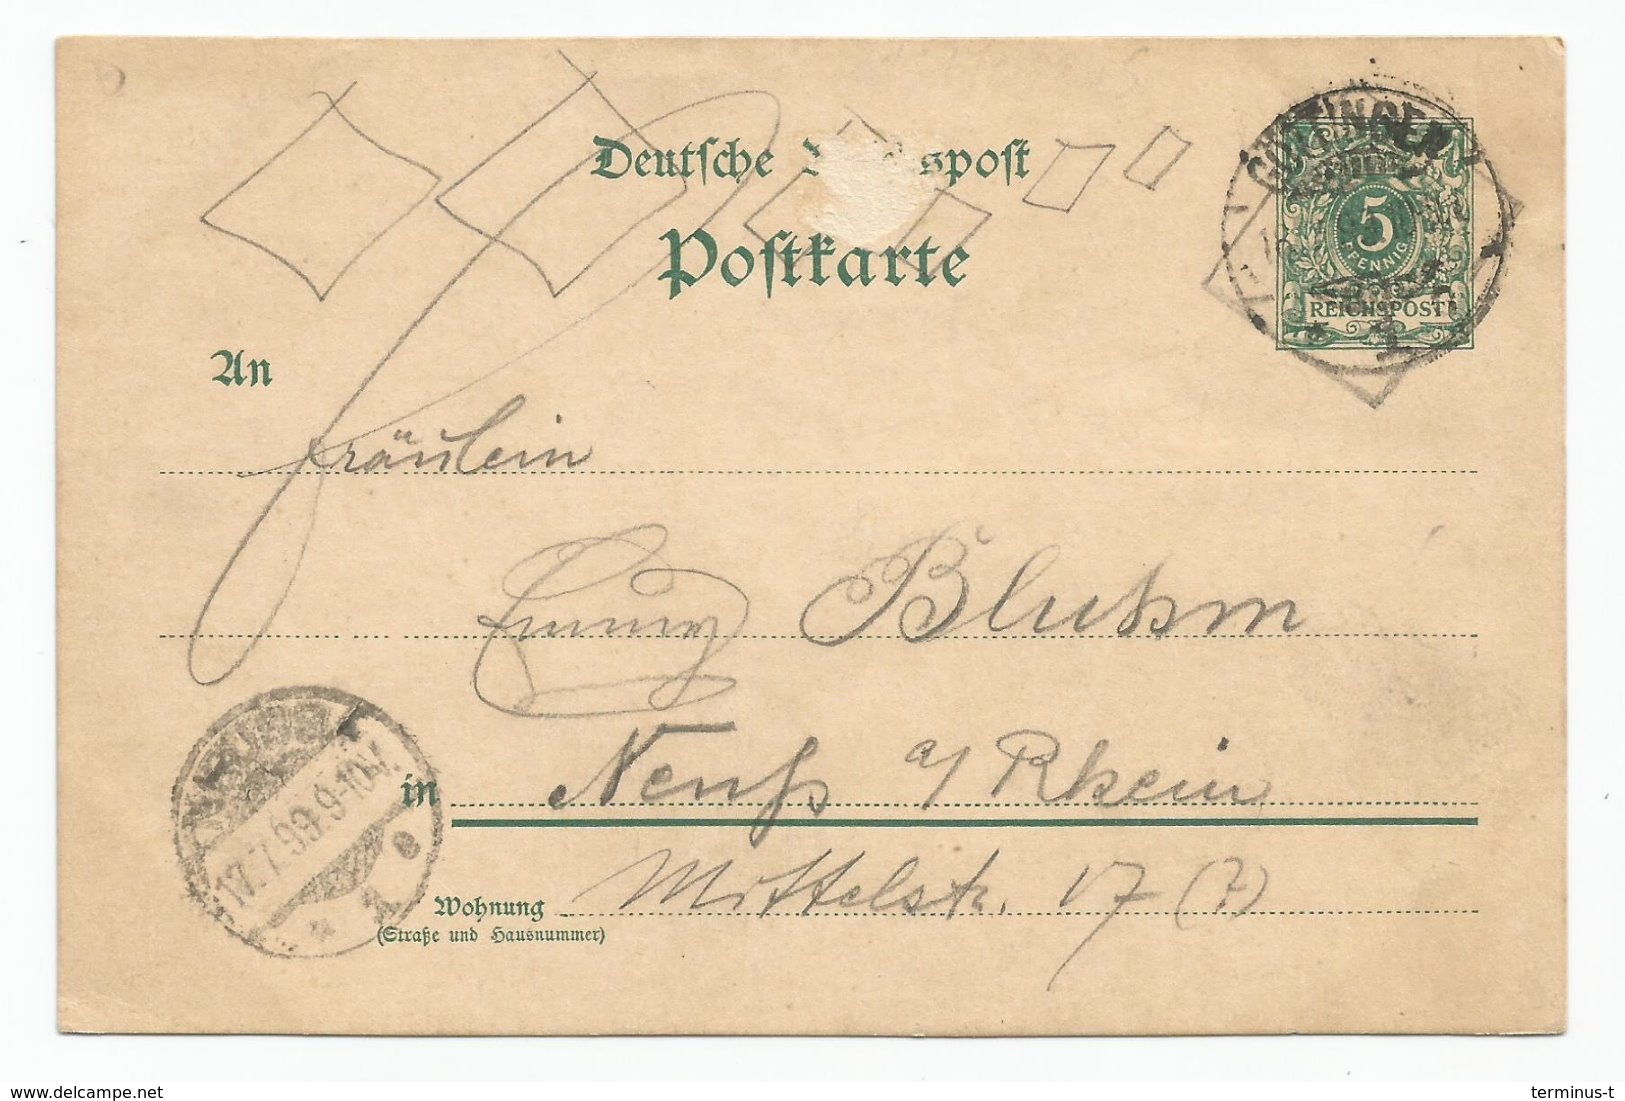 Deutsche spost
Postkarte
GÖTTINGEN
5
PFENNIG
REICHSPOST
1
An
Fräulein
Emmy Bluhm
in Neuß a/Rhein
17.7.99.9-10V.
Wohnung Mittelstr. 17 (7)
(Straße und Hausnummer)
www.delcampe.net
terminus-t